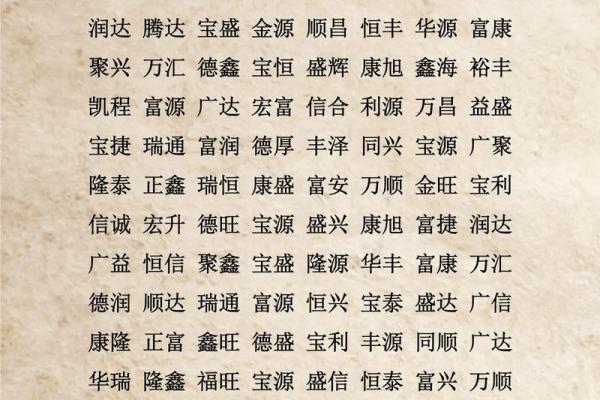 润达 腾达 宝盛 金源 顺昌 恒丰 华源 富康
聚兴 万汇 德鑫 宝恒 盛辉 康旭 鑫海 裕丰
凯程 富源 广达 宏富 信合 利源 万昌 益盛
宝捷 瑞通 富润 德厚 丰泽 同兴 宝源 广聚
隆泰 正鑫 瑞恒 康盛 富安 万顺 金旺 宝利
信诚 宏升 德旺 宝源 盛兴 康旭 富捷 润达
广益 恒信 聚鑫 宝盛 隆源 华丰 富康 万汇
德润 顺达 瑞通 富源 恒兴 宝泰 盛达 广信
康隆 正富 鑫旺 德盛 宝利 丰源 同顺 广达
华瑞 隆鑫 福旺 宝源 盛信 恒泰 富兴 万顺